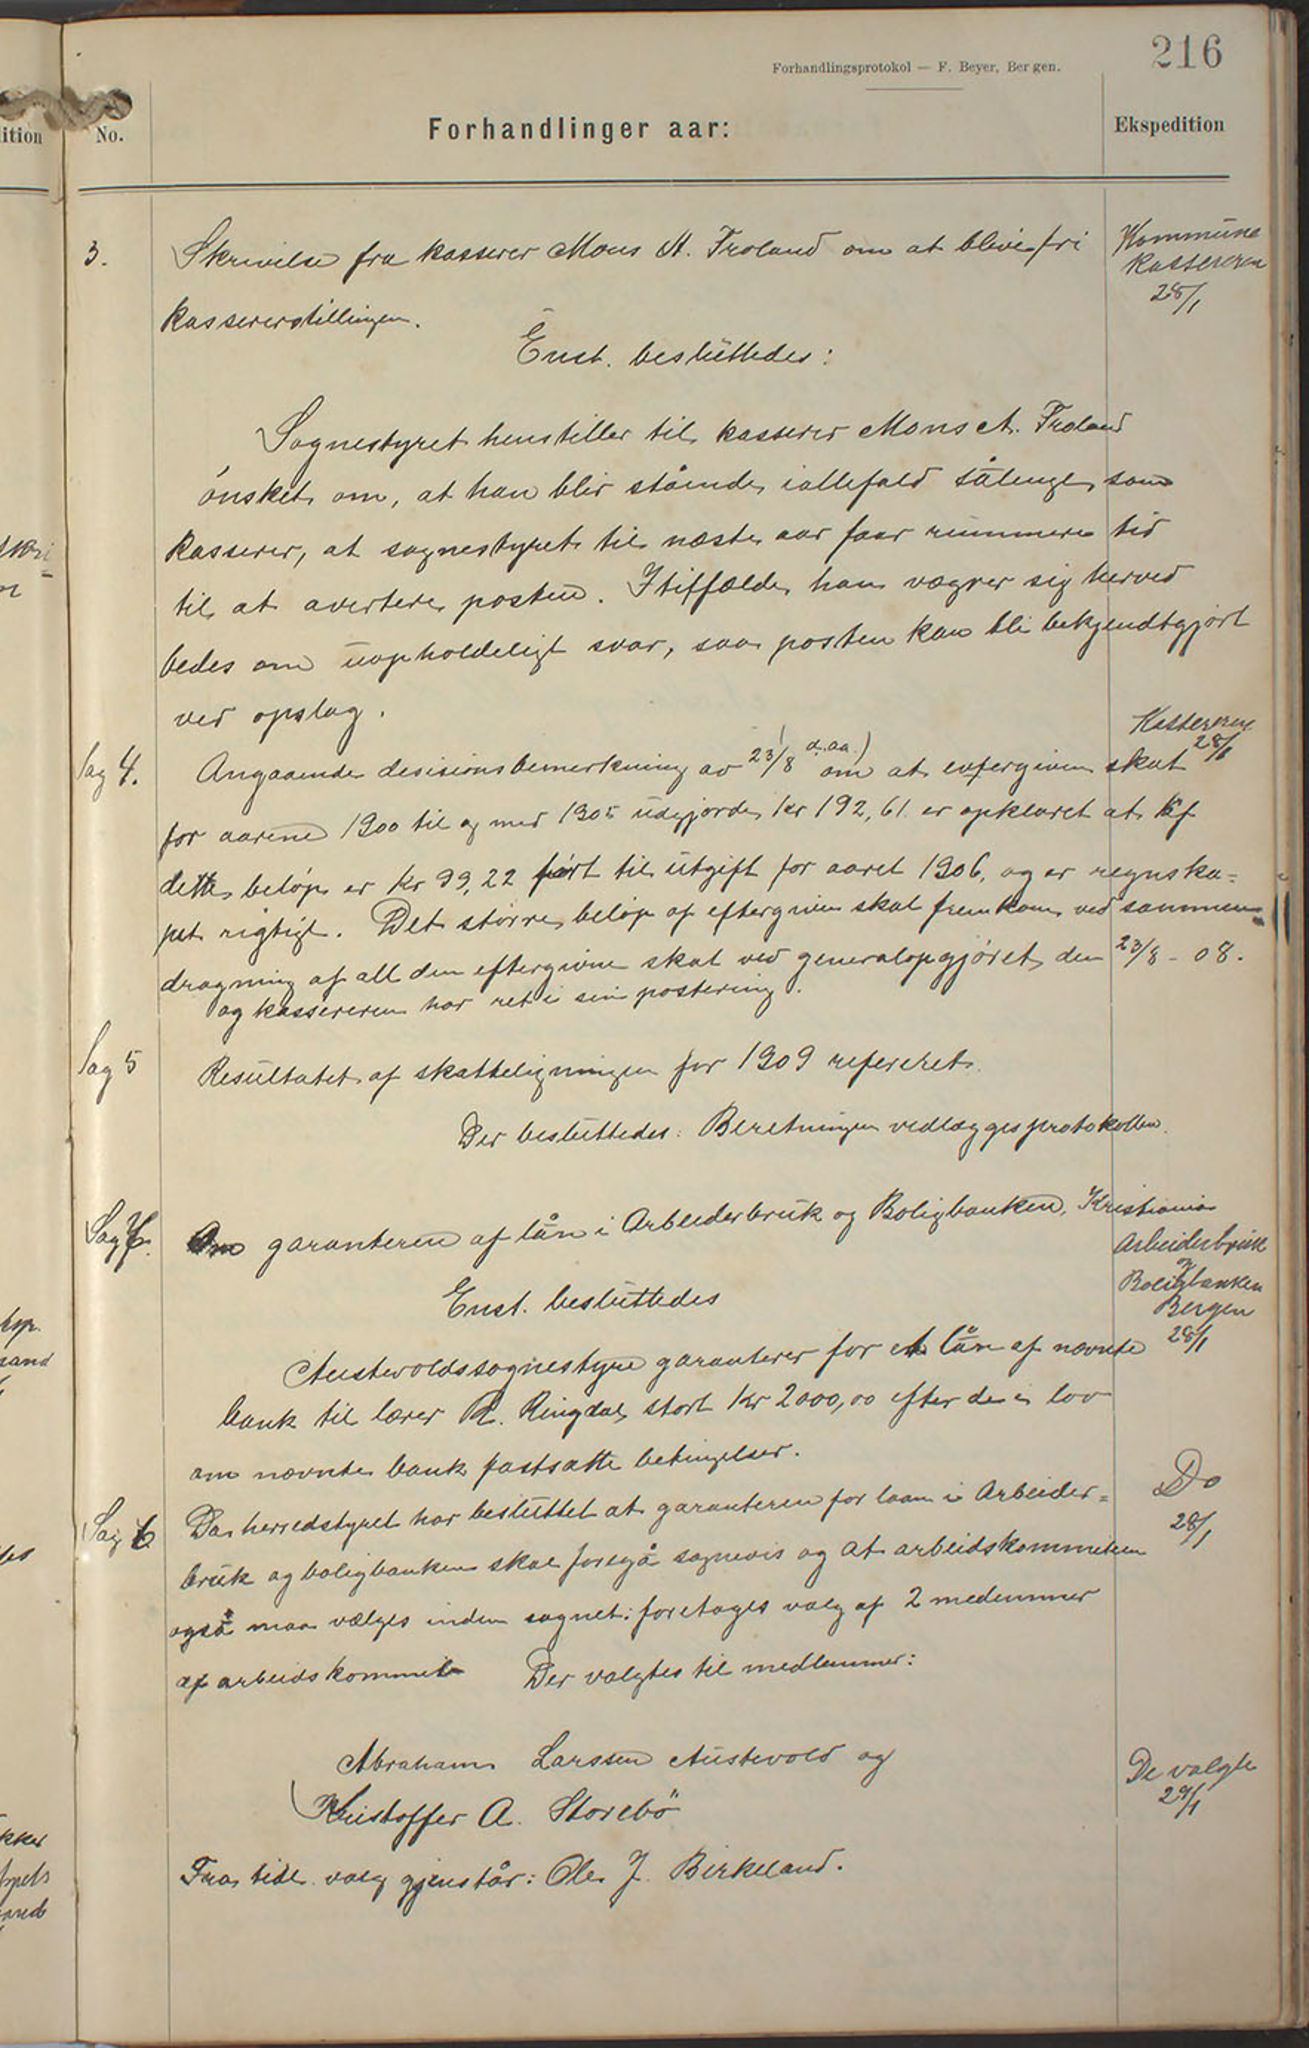 216
Forhandlingsprotokol — F. Beyer, Bergen.
No.
Forhandlinger aar:
Ekspedition
3.
Skrivelse fra kasserer Mons A. Froland om at blive fri
kassererstillingen.
Kommune
kassereren
28/1
Enst. besluttedes:
Sognestyret henstiller til kasserer Mons A. Froland
ønsket om, at han blir stående iallefald sålenge som
kasserer, at sognestyret til næste aar faar rummere tid
til at avertere posten. Itilfælde han vægrer sig herved
bedes om uopholdeligt svar, saa posten kan bli bekjendtgjort
ved opslag.
Kassereren
28/1
Sag 4.
Angaaende desisionsbemerkning av 23/8 d. aa.) om at eftergiven skat
for aarene 1900 til og med 1905 udgjorde Kr 192,61 er opklaret at af
dette beløp er Kr 99,22 ført til utgift for aaret 1906, og er regnska-
pet rigtigt. Det større beløp af eftergiven skat fremkom ved sammen-
dragning af all den eftergivne skat ved generalopgjøret den 23/8 - 08.
og kassereren har ret i sin postering.
Sag 5
Resultatet af skatteligningen for 1909 refereret.
Der besluttedes: Beretningen vedlægges protokollen.
Sag
Om garanteren af lån i Arbeiderbruk og Boligbanken, Kristiania
Arbeiderbruk
og
Boligbanken
Bergen
28/1
Enst. besluttedes
Austevoldssognestyre garanterer for et lån af nævnte
bank til lærer R. Ringdal stort Kr 2000,00 efter de i lov
om nævnte bank fastsatte betingelser.
Sag 6
Da herredstyret har besluttet at garanteren for laan i Arbeider-
bruk og boligbanken skal foregå sognevis og at arbeidskommiteen
også maa vælges inden sognet: foretages valg af 2 medemmer
af arbeidskommite Der valgtes til medlemmer:
Do
28/1
Abraham Larssen Austevold og
Kristoffer A. Storebö
De valgte
29/1
Fra tidl. valg gjenstår: Ole J. Birkeland.